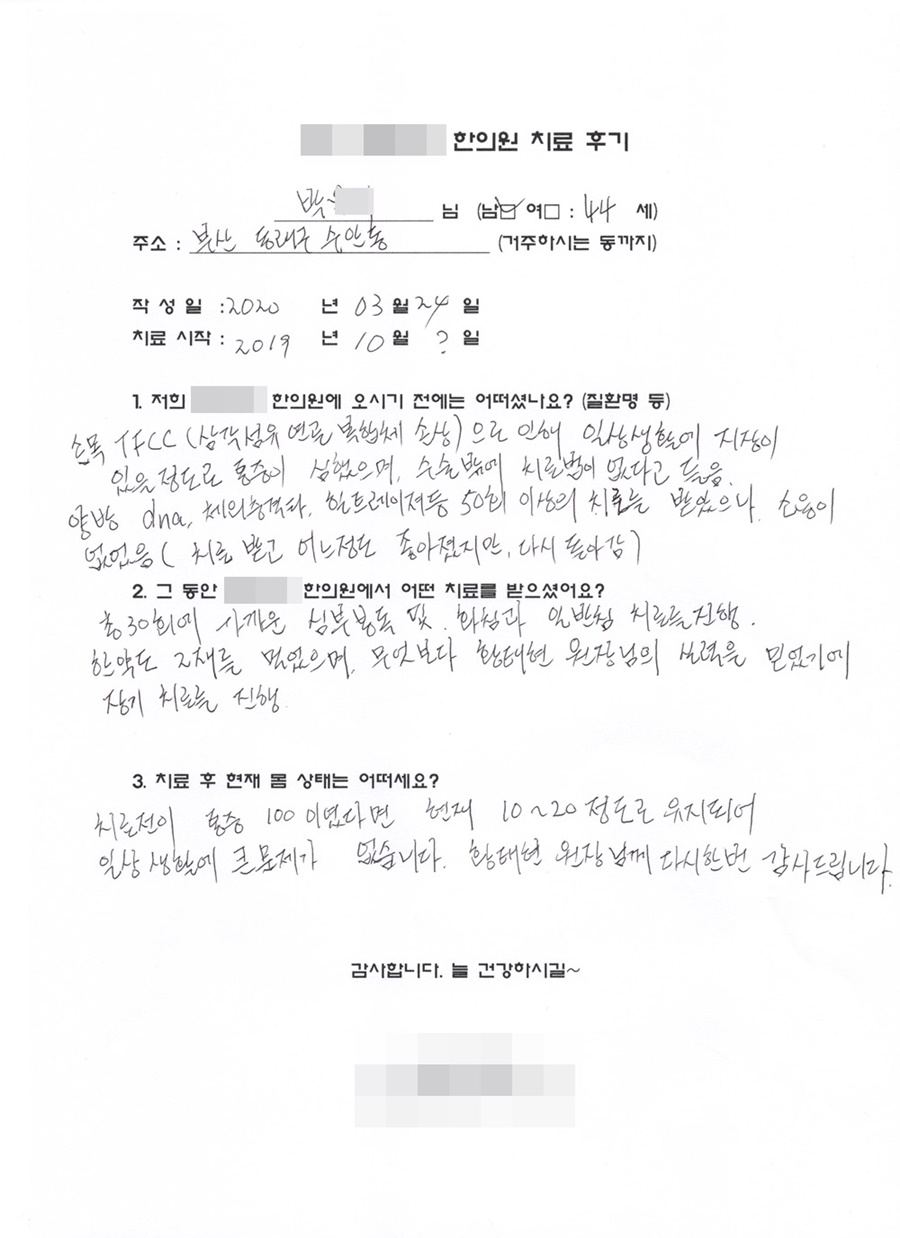 한의원 치료 후기
박 님 (남☑ 여□ : 44 세)
주소 : 부산 동래구 수안동 (거주하시는 동까지)
작 성 일 : 2020 년 03 월 24 일
치료 시작 : 2019 년 10 월 ? 일
1. 저희 한의원에 오시기 전에는 어떠셨나요? (질환명 등)
손목 TFCC (삼각섬유 연골 복합체 손상)으로 인해 일상생활에 지장이
있을정도로 통증이 심했으며, 수술밖에 치료법이 없다고 들음.
양방 dna, 체외충격파, 힐트레이저등 50회 이상의 치료를 받았으나, 소용이
없었음 ( 치료 받고 어느정도 좋아졌지만, 다시 돌아감 )
2. 그 동안 한의원에서 어떤 치료를 받으셨어요?
총 30회에 가까운 심부봉독 및, 화침과 일반침 치료를 진행.
한약도 2재를 먹었으며, 무엇보다 황태현 원장님의 실력을 믿었기에
장기 치료를 진행.
3. 치료 후 현재 몸 상태는 어떠세요?
치료전이 통증 100 이였다면 현재 10~20 정도로 유지되어
일상 생활에 큰문제가 없습니다. 황태현 원장님께 다시한번 감사드립니다.
감사합니다. 늘 건강하시길~